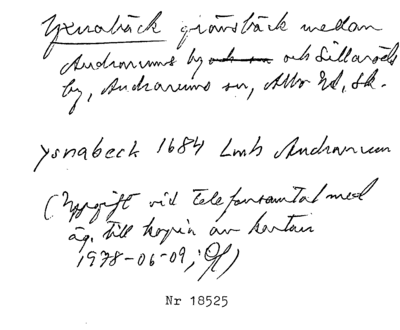 Yxnabäck gränsbäck medan
Andrarums by och sn och Sillaröds
by, Andrarums sn, Albo hd, Sk.
Ysnabeck 1684 Lmh Andrarum
(Uppgift vid telefonsamtal med
äg. till kopia av kartan
1978-06-09,
Nr 18525